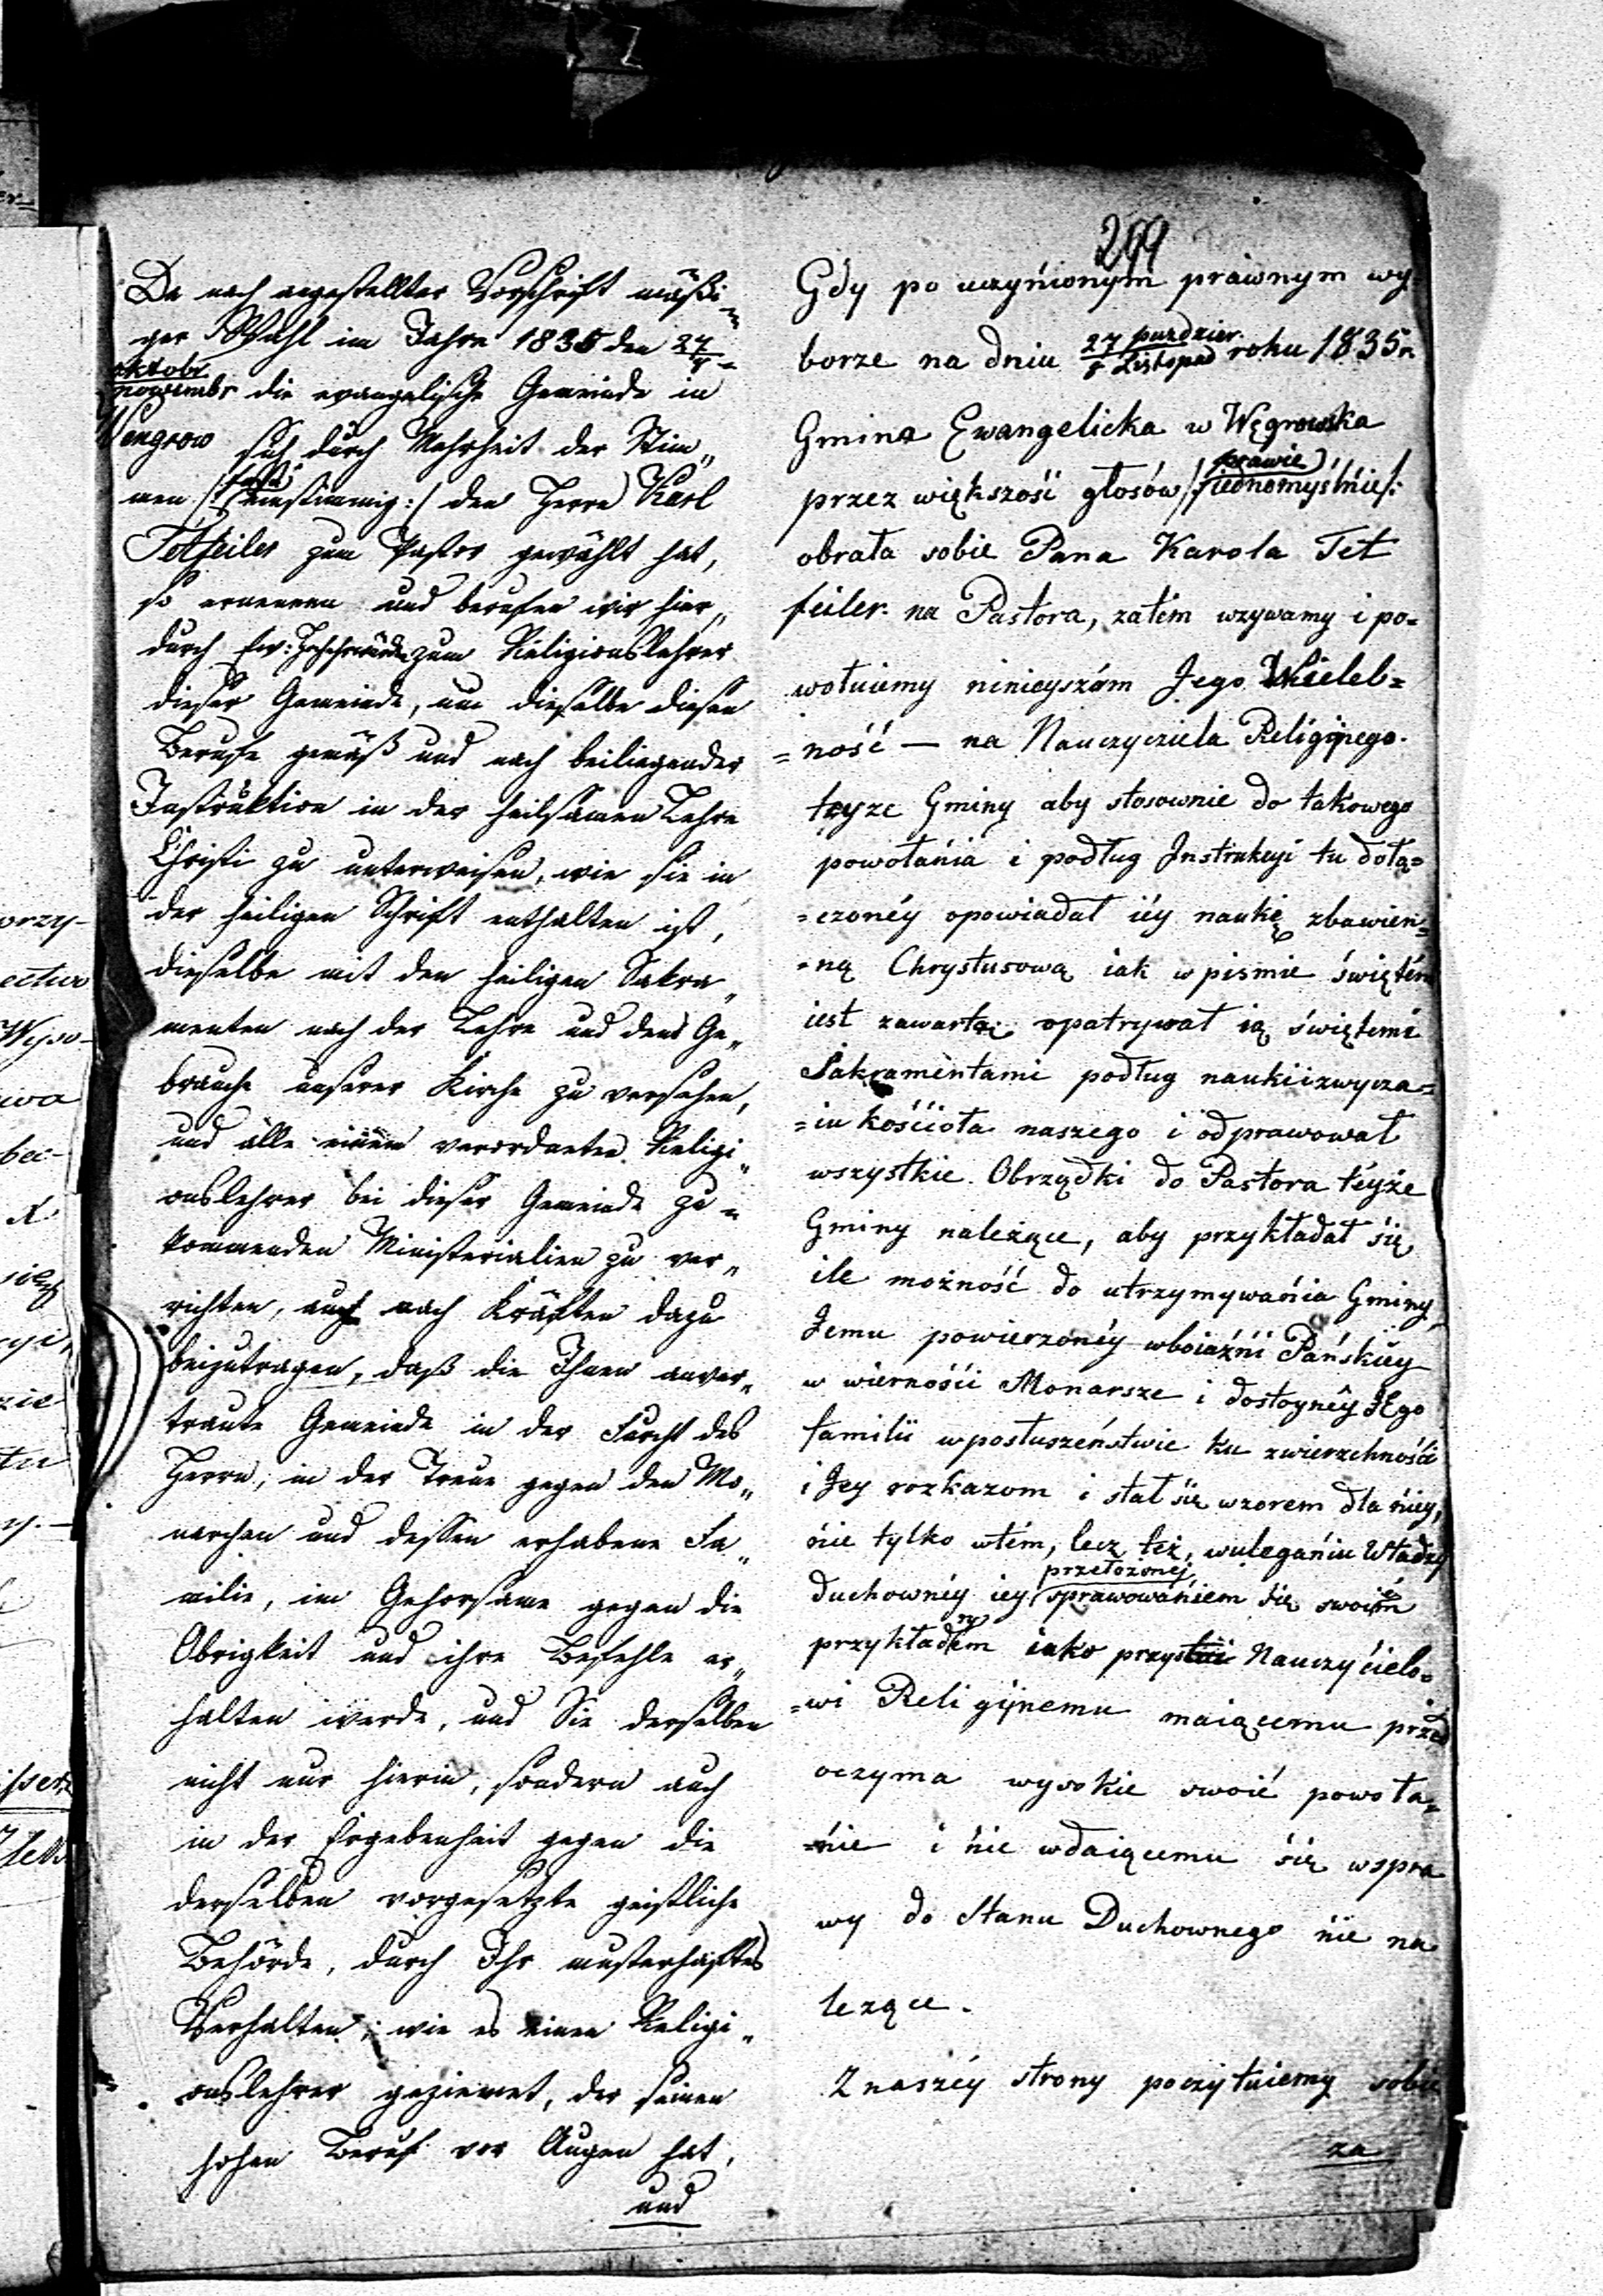 299
Da nach angestellter Vorschrift mäßi=
ger Wahl im Jahre 1835 den 27/8 =
oktobr
novembr die evangelische Gemeinde in
Wengrow sich durch Mehrheit der Stim„
men /: fast einstimmig :/ den Herrn Karl
Tetfeiler zum Pastor gewählt hat,
so ernennen und berufen wir hier„
durch Ew: Hochehrwürden zum Religionslehrer
dieser Gemeinde, um dieselbe diesem
Berufe gemäß und nach beiliegender
Instruktion in der heilsamen Lehre
Christi zu unterweisen, wie sie in
der heiligen Schrift enthalten ist,
dieselbe mit den heiligen Sakra„
menten nach der Lehre und dem Ge„
brauche unserer Kirche zu versehen,
und alle einem verordneten Religi„
onslehrer bei dieser Gemeinde zu=
kommenden Ministerialien zu ver„
richten, auch nach Kräften dazu
beizutragen, daß die Ihnen anver„
traute Gemeinde in der Furcht des
Herrn, in der Treue gegen den Mo„
narchen und dessen erhabene Fa„
milie, im Gehorsame gegen die
Obrigkeit und ihre Befehle er„
halten werde, und Sie derselben
nicht nur hierin, sondern auch
in der Ergebenheit gegen die
derselben vorgesetzte geistliche
Behörde, durch Ihr musterhaftes
Verhalten, wie es einem Religi„
onslehrer geziemet, der seinen
hohen Beruf vor Augen hat,
und
Gdy po uczynionym prawnym wy=
borze na dniu 27 pazdzier. / 8 Listopad roku 1835 r.
Gmina Ewangelicka w Węgrowska
przez większość głosów /: prawie jednomyślnie /:
obrała sobie Pana Karola Tet
feiler na Pastora, zatém wzywamy i po=
wołuiemy ninieyszém Jego Wieleb=
=ność — na Nauczyciela Religiynego
teyze Gminy aby stosownie do takowego
powołania i podług Instrukcyi tu dołą=
=czonéy opowiadał iéy naukę zbawien=
=ną Chrystusową iak w pismie świętém
iest zawarta, opatrywał ią świętemi
Sakramentami podług nauki i zwycza=
=iu kościoła naszego i odprawował
wszystkie Obrządki do Pastora teyże
Gminy należące, aby przykładał się
ile możność do utrzymywania Gminy
Jemu powierzonéy w boiaźni Pańskiéy
w wierności Monarsze i dostoynéy Jego
familii w posłuszeństwie ku zwierzchności
i Jey rozkazom i stał się wzorem dla niey,
nie tylko w tém, lecz też, w uleganiu Władzy
duchownéy iey przełożonej sprawowaniem się swoiém
przykładnym iako przystoi Nauczycielo=
=wi Religiynemu maiącemu przed
oczyma wysokie swoié powoła=
=nie i nie wdaiącemu się w spra
wy do Stanu Duchownego nie na
leżące.
Z naszéy strony poczytuiemy sobie
za